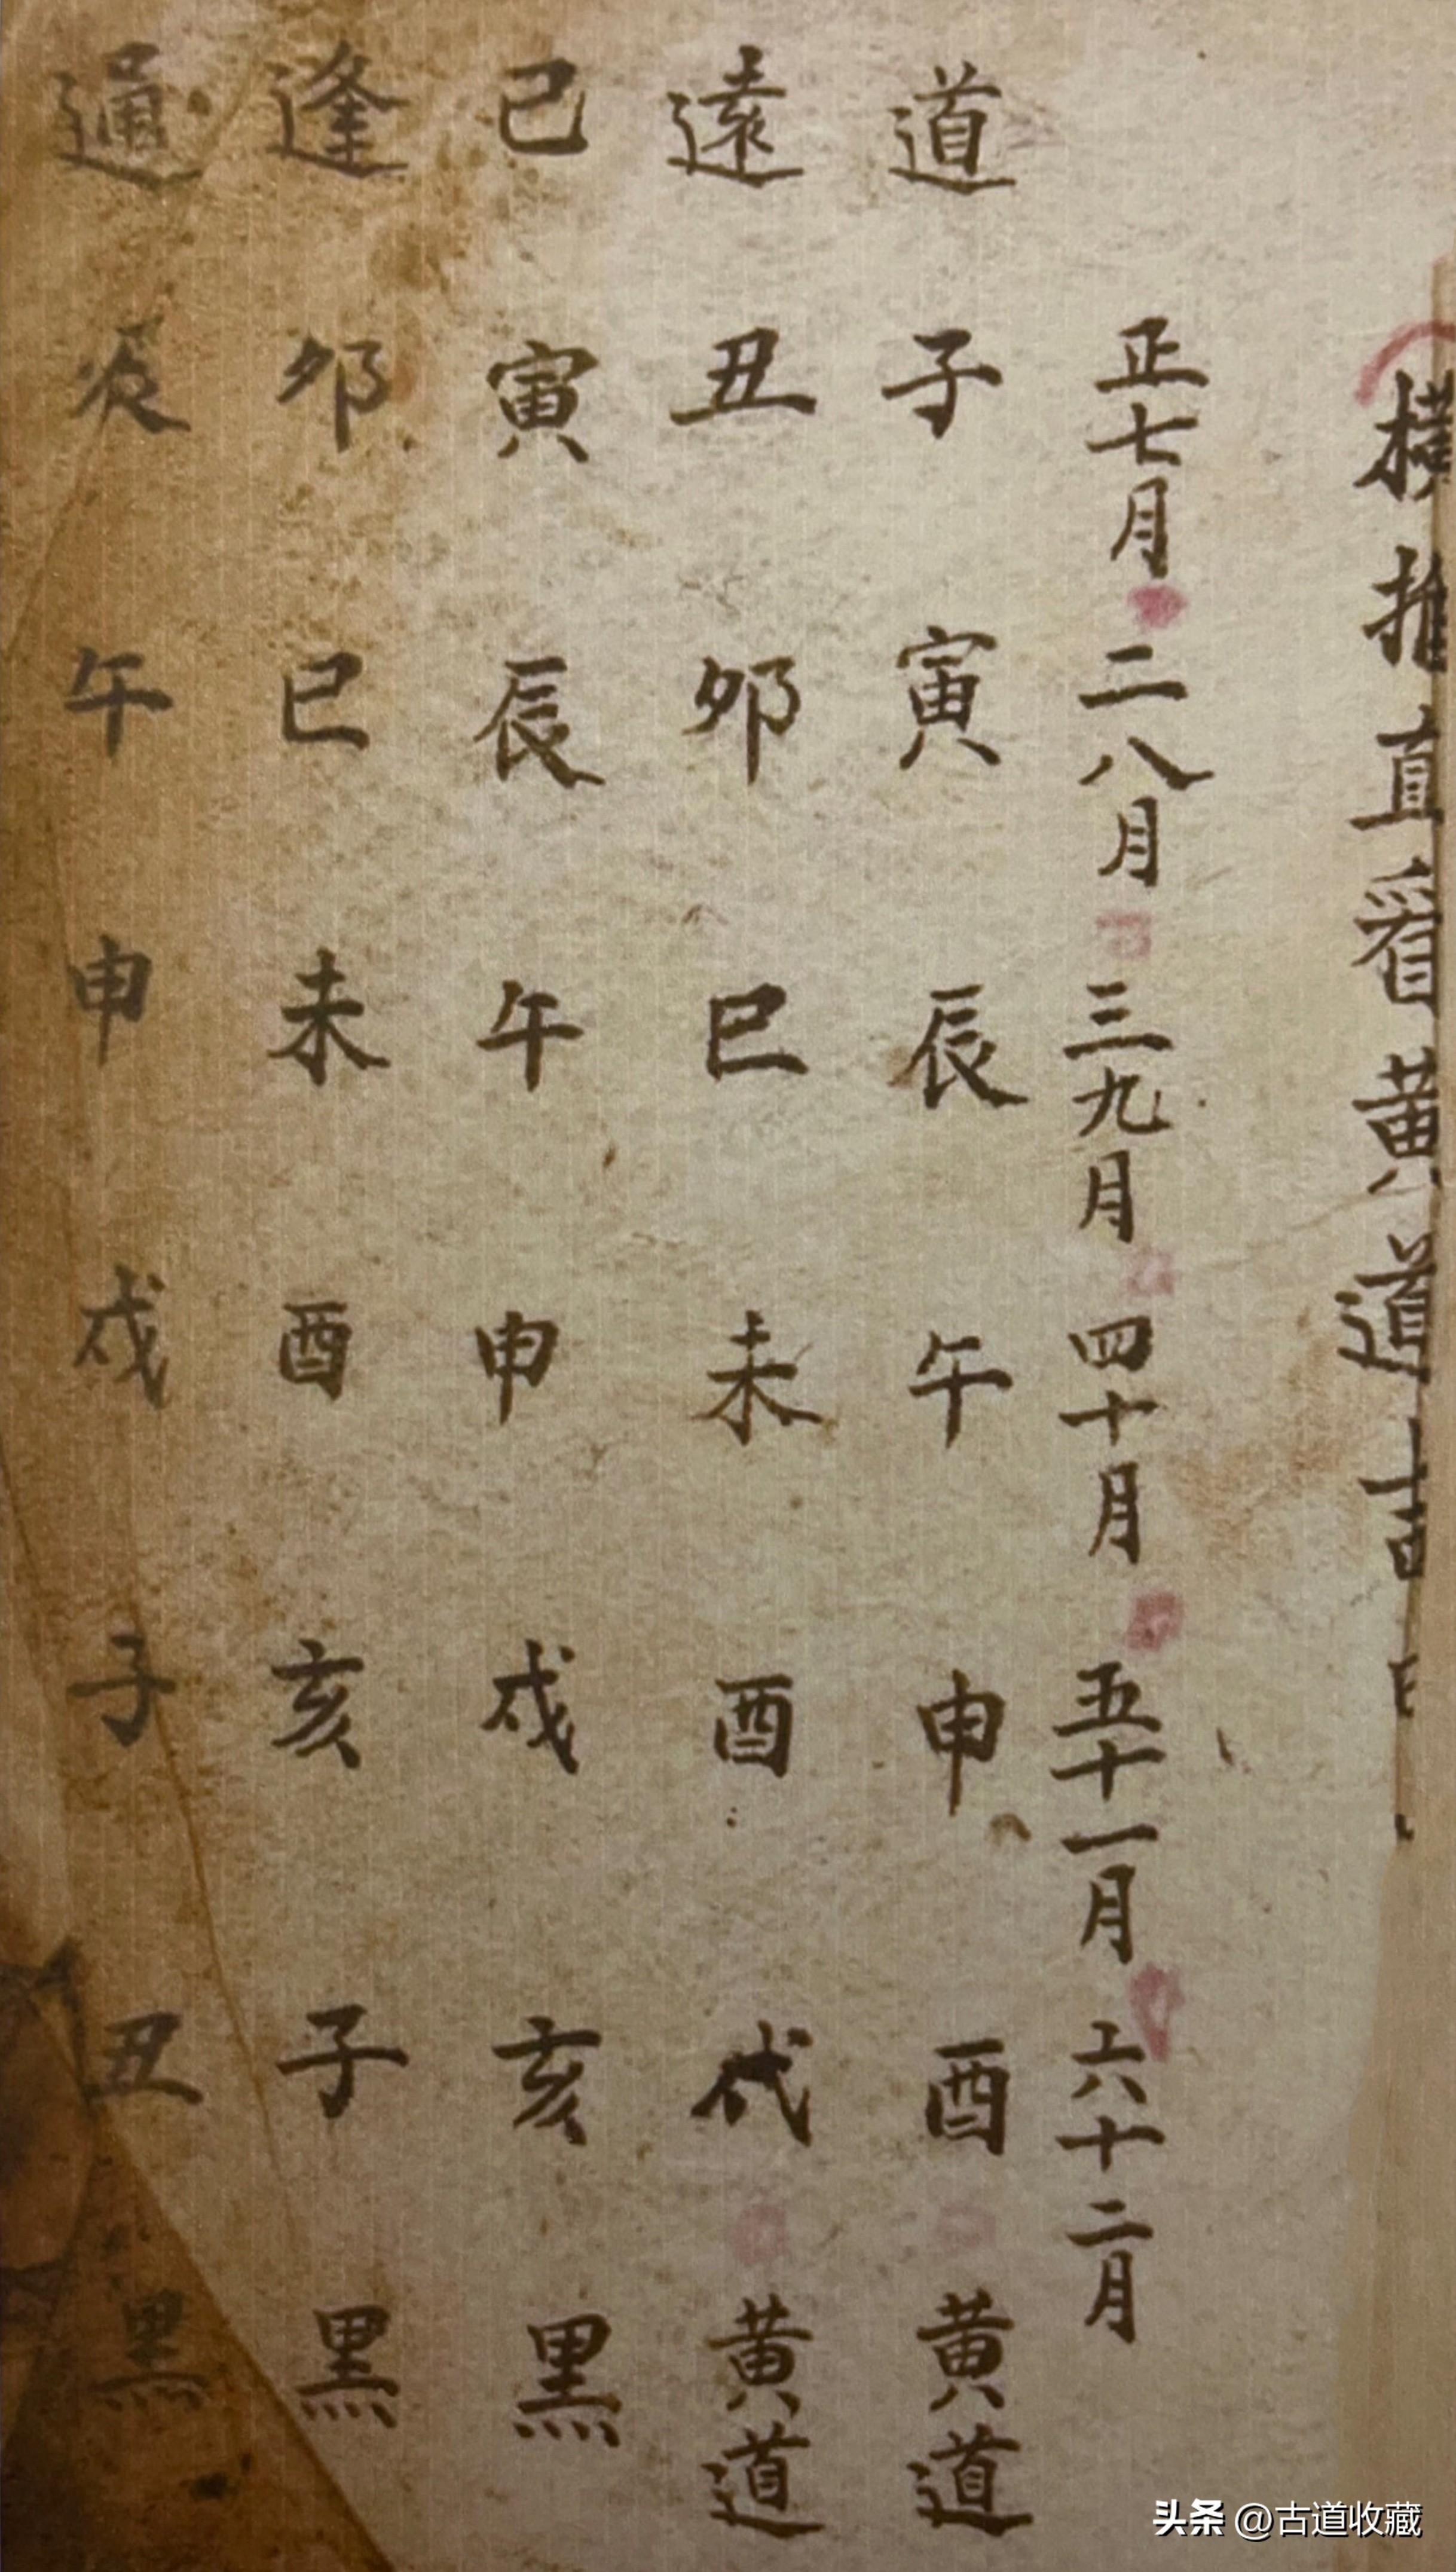 橫推直看黃道吉
正七月 二八月 三九月 四十月 五十一月 六十二月
道 子 寅 辰 午 申 酉 黃道
遠 丑 卯 巳 未 酉 戌 黃道
己 寅 辰 午 申 戌 亥 黑
逢 卯 巳 未 酉 亥 子 黑
通 辰 午 申 戌 子 丑 黑
头条 @古道收藏